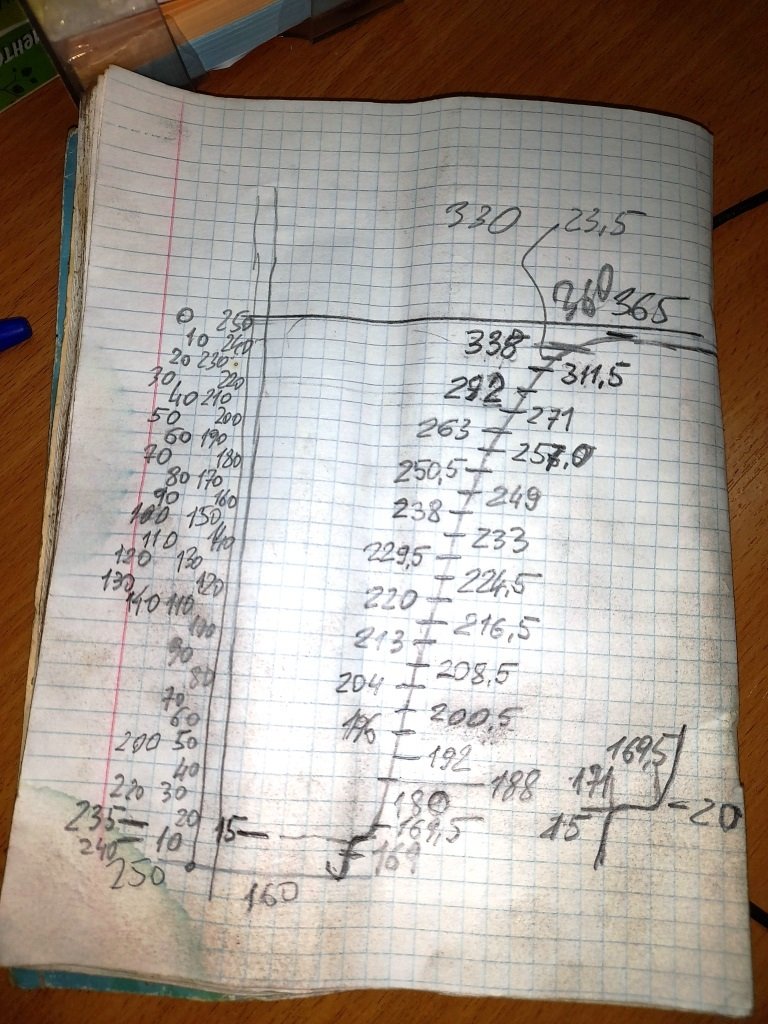 330 23,5
360 365
0 250
338
10 240
20 230
311,5
30 220
292
40 210
271
50 200
263
60 190
257,0
70 180
250,5
80 170
249
90 160
238
100 150
233
110 140
229,5
120 130
224,5
130 120
220
140 110
216,5
100
213
90
208,5
80
204
70
200,5
60
196
200 50
192
169,5
40
188
171
220 30
180
20
235 20
15
169,5
15
240 10
169
250
160